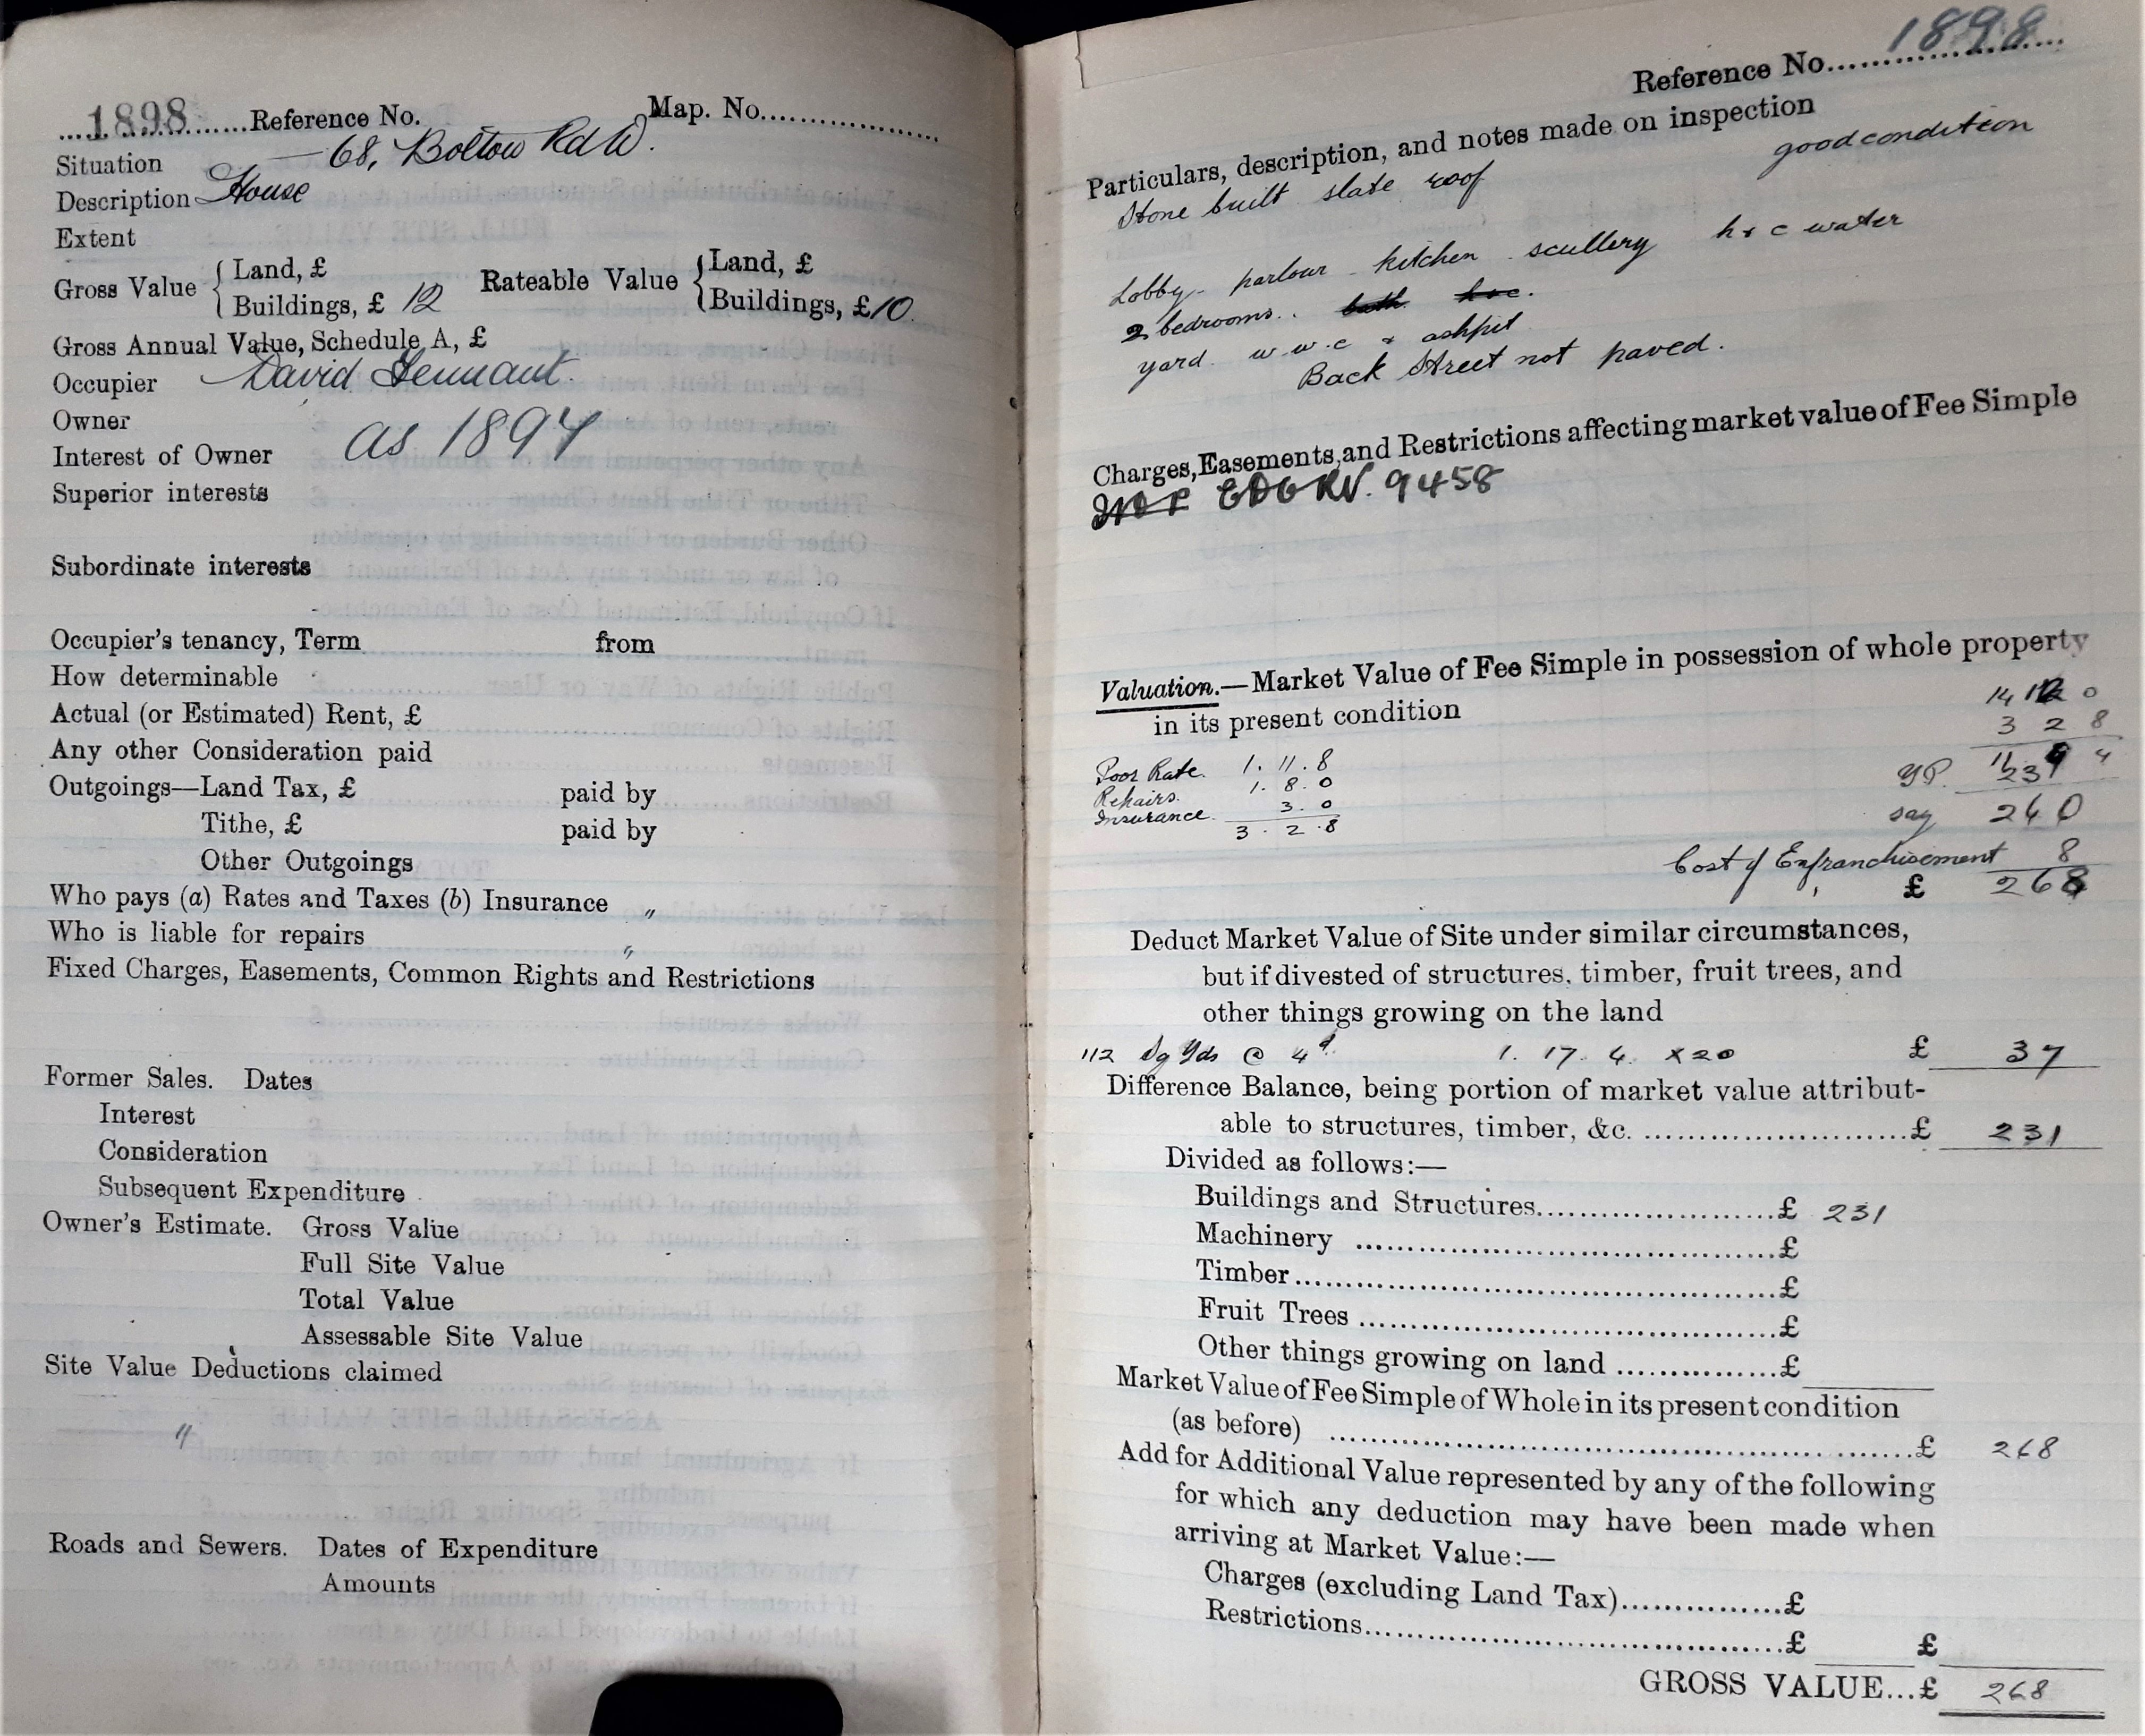 1898 Reference No. Map. No.
Situation 68, Bolton Rd W.
Description House
Extent
Gross Value { Land, £ Rateable Value { Land, £
Buildings, £ 12 Buildings, £10.
Gross Annual Value, Schedule A, £
Occupier David
Owner
as 1894
Interest of Owner
Superior interests
Subordinate interests
Occupier's tenancy, Term from
How determinable
Actual (or Estimated) Rent, £
Any other Consideration paid
Outgoings—Land Tax, £ paid by
Tithe, £ paid by
Other Outgoings
Who pays (a) Rates and Taxes (b) Insurance "
Who is liable for repairs "
Fixed Charges, Easements, Common Rights and Restrictions
Former Sales. Dates
Interest
Consideration
Subsequent Expenditure
Owner's Estimate. Gross Value
Full Site Value
Total Value
Assessable Site Value
Site Value Deductions claimed
"
Roads and Sewers. Dates of Expenditure
Amounts
Reference No. 1898
Particulars, description, and notes made on inspection
good condition
Stone built slate roof
Lobby - parlour - kitchen scullery h & c water
2 bedrooms. bath h&c.
yard w.w.c & ashpit
Back Street not paved.
Charges, Easements, and Restrictions affecting market value of Fee Simple
9458
Valuation.—Market Value of Fee Simple in possession of whole property
in its present condition
14 12 0
3 2 8
11 9 4
Poor Rate. 1. 11. 8
Repairs. 1. 8. 0
Insurance. 3. 0
3. 2. 8
YP.
say 260
Cost of Enfranchisement 8
£ 268
Deduct Market Value of Site under similar circumstances,
but if divested of structures, timber, fruit trees, and
other things growing on the land
112 Sq Yds @ 4d 1. 17. 4. x 20 £ 37
Difference Balance, being portion of market value attribut-
able to structures, timber, &c. £ 231
Divided as follows:—
Buildings and Structures £ 231
Machinery £
Timber £
Fruit Trees £
Other things growing on land £
Market Value of Fee Simple of Whole in its present condition
(as before) £ 268
Add for Additional Value represented by any of the following
for which any deduction may have been made when
arriving at Market Value:—
Charges (excluding Land Tax) £
Restrictions £ £
GROSS VALUE...£ 268